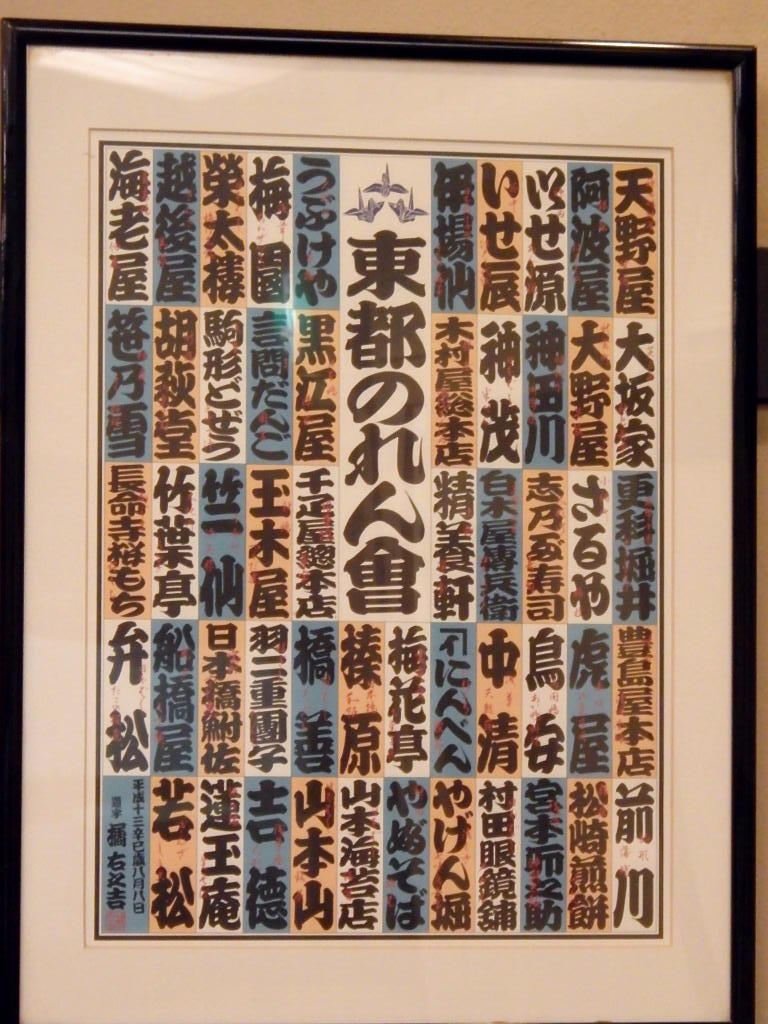 東都のれん會
天野屋
阿波屋
いせ源
いせ辰
伊場仙
うぶけや
梅園
榮太樓
越後屋
海老屋
大坂家
大野屋
神田川
神茂
木村屋総本店
黒江屋
言問だんご
駒形どぜう
胡萩堂
笹乃雪
更科堀井
さるや
志乃多寿司
白木屋傳兵衛
精養軒
千疋屋總本店
玉木屋
竺仙
竹葉亭
長命寺桜もち
豊島屋本店
虎屋
鳥安
中清
にんべん
梅花亭
榛原
橋善
羽二重團子
日本橋鮒佐
船橋屋
弁松
前川
松崎煎餅
宮本卯之助
村田眼鏡舗
やげん堀
やぶそば
山本海苔店
山本山
吉徳
蓮玉庵
若松
平成十三辛巳歳八月八日
橘右之吉